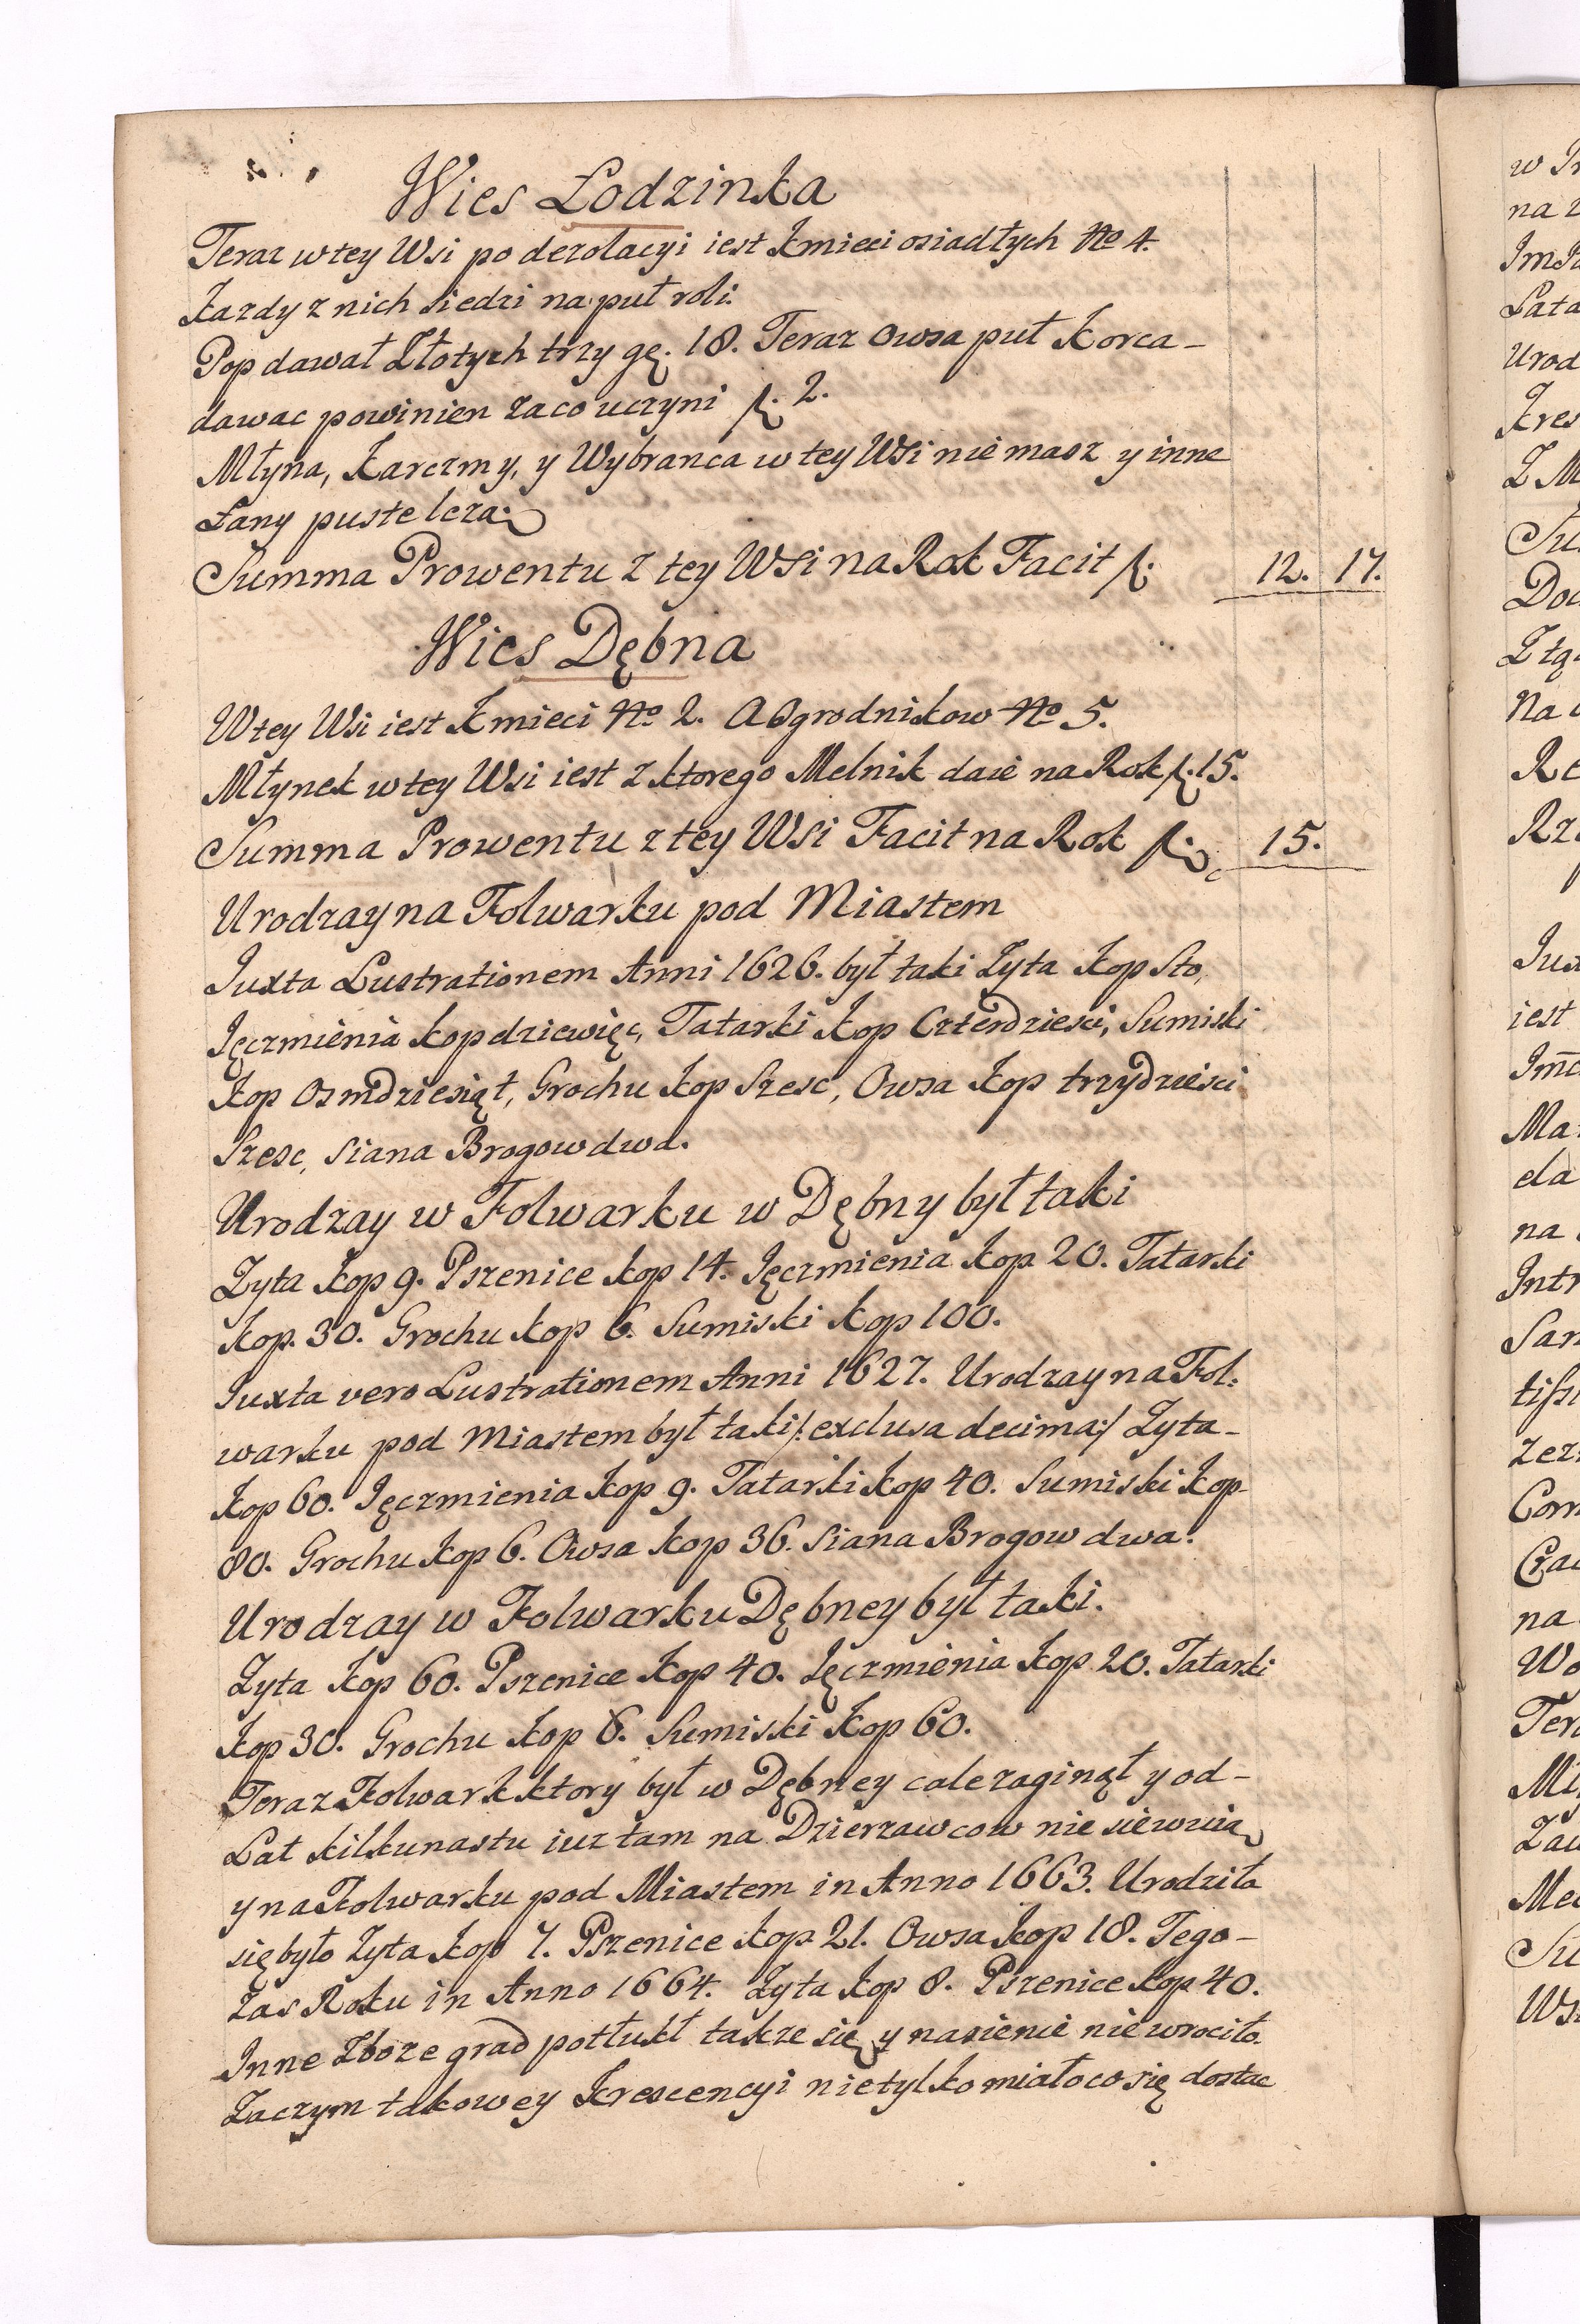 Wies Łodzinka
Teraz w tey Wsi po dezolacyi iest Kmieci osiadłych No 4.
Kazdy z nich siedzi na puł roli.
Pop dawał Złotych trzy gę. 18. Teraz Owsa puł Korca -
dawac powinien zaco uczyni f. 2.
Młyna, Karczmy, y Wybranca w tey Wsi nie masz y inne
Łany puste leza.
Summa Prowentu z tey Wsi na Rok Facit f. 12. 17.
Wies Dębna
W tey Wsi iest Kmieci No 2. A Ogrodnikow No 5.
Młynek w tey Wsi iest z ktorego Melnik daie na Rok f. 15.
Summa Prowentu z tey Wsi Facit na Rok f. 15.
Urodzay na Folwarku pod Miastem
Iuxta Lustrationem Anni 1626. był taki Zyta Kop Sto,
Ięczmienia kop dziewięc, Tatarki kop Czterdziesci, Sumiski
Kop Osmdziesiąt, Grochu kop Szesc, Owsa kop trzydziesci
Szesc, Siana Brogow dwa.
Urodzay w Folwarku w Dębny był taki
Zyta kop 9. Pszenice kop 14. Ięczmienia kop 20. Tatarki
kop. 30. Grochu kop 6. Sumiski kop 100.
Iuxta vero Lustrationem Anni 1627. Urodzay na Fol:
warku pod Miastem był taki /: exclusa decima :/ Zyta -
kop 60. Ięczmienia kop 9. Tatarki kop 40. Sumiski kop
80. Grochu kop 6. Owsa kop 36. Siana Brogow dwa.
Urodzay w Folwarku Dębney był taki.
Zyta kop 60. Pszenice kop 40. Ięczmienia kop 20. Tatarki
kop 30. Grochu kop 6. Sumiski kop 60.
Teraz Folwark ktory był w Dębney cale zaginął y od -
Lat kilkunastu iuz tam na Dzierzawcow nie siewaią
y na Folwarku pod Miastem in Anno 1663. Urodziła
się było Zyta kop 7. Pszenice kop 21. Owsa kop 18. Tego -
zas Roku in Anno 1664. Zyta kop 8. Pszenice kop 40.
Inne Zboze grad potłukł takze się y nasienie nie wrociło.
Zaczym takowey Krescencyi nie tylko miało co się dostac